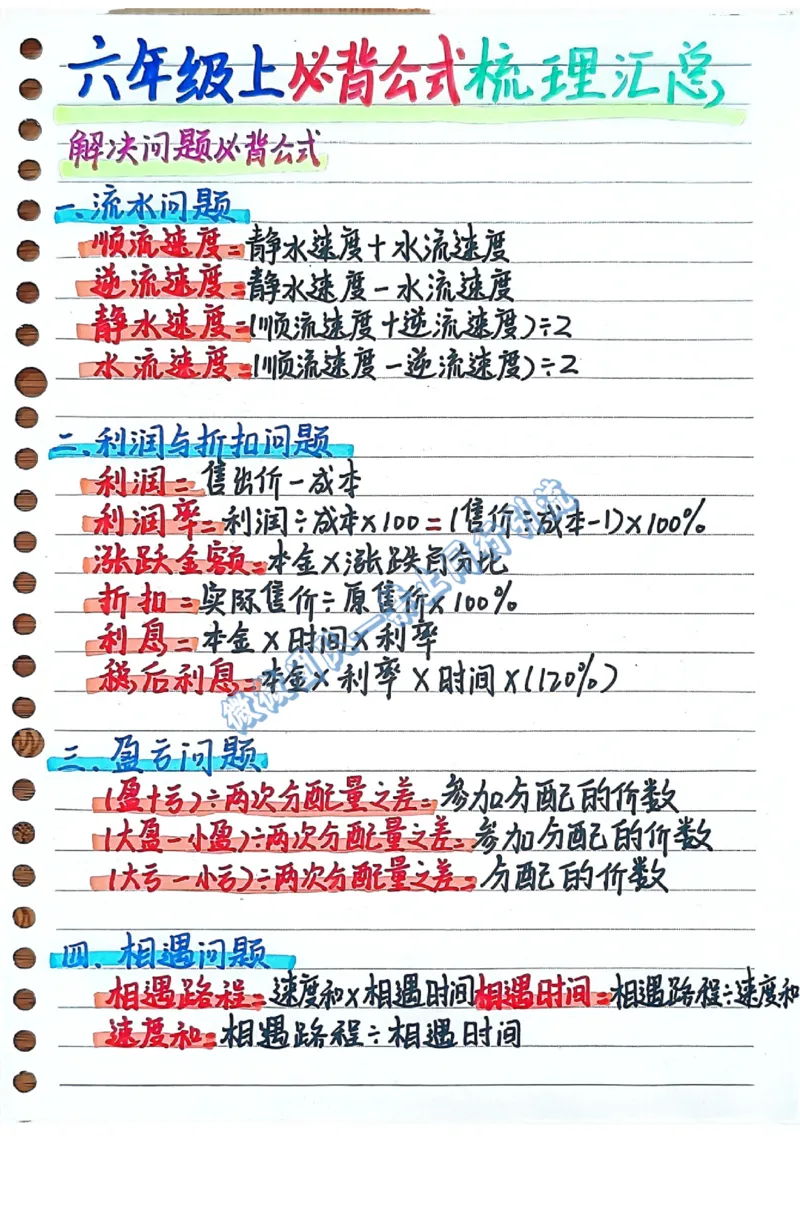 六年级上必背公式梳理汇总
解决问题必背公式
一.流水问题
顺流速度=静水速度+水流速度
逆流速度=静水速度-水流速度
静水速度=(顺流速度+逆流速度)÷2
水流速度=(顺流速度-逆流速度)÷2
二.利润与折扣问题
利润=售出价-成本
利润率=利润÷成本×100=(售价÷成本-1)×100%
涨跌金额=本金×涨跌百分比
折扣=实际售价÷原售价×100%
利息=本金×时间×利率
税后利息=本金×利率×时间×(120%)
三.盈亏问题
(盈+亏)÷两次分配量之差=参加分配的份数
(大盈-小盈)÷两次分配量之差=参加分配的份数
(大亏-小亏)÷两次分配量之差=分配的份数
四.相遇问题
相遇路程=速度和×相遇时间相遇时间=相遇路程÷速度和
速度和=相遇路程÷相遇时间